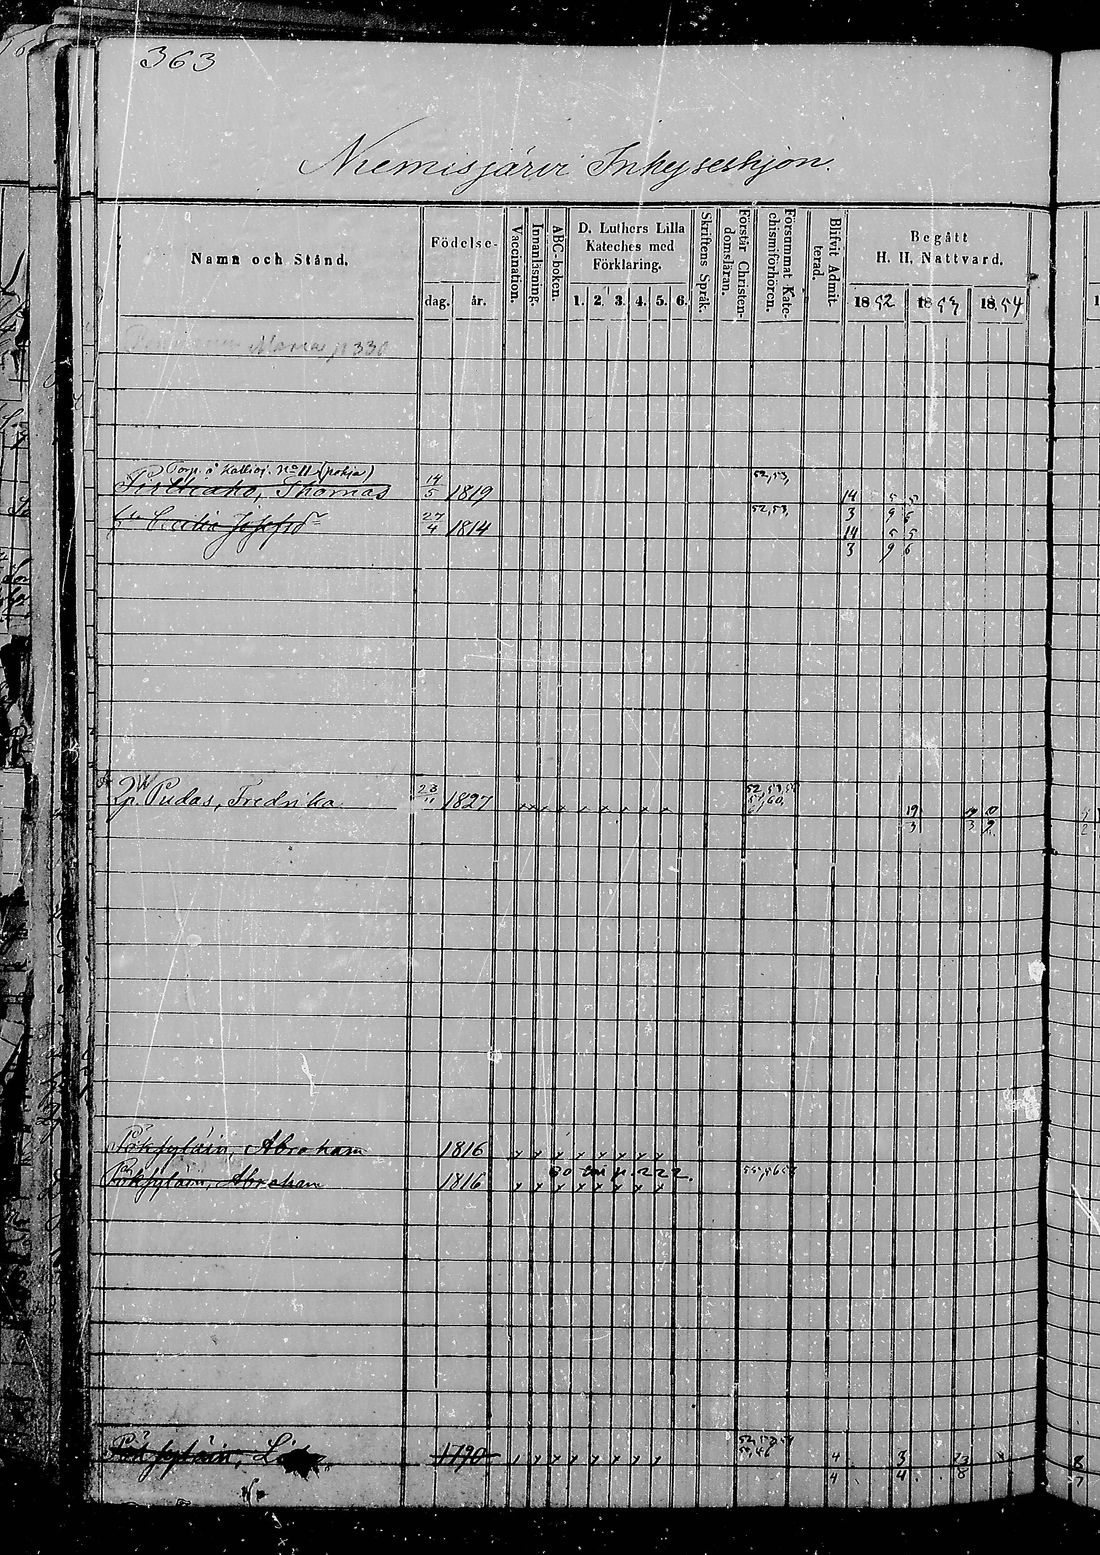 363
Niemisjärvi Inhyseshjon.
Namn och Stånd.
Födelse-
dag. år.
Vaccination.
Innanläsning.
ABC-boken.
D. Luthers Lilla
Kateches med
Förklaring.
1. 2. 3. 4. 5. 6.
Skriftens Språk.
Förstår Christen-
domsläran.
Försummat Kate-
chismiförhören.
Blifvit Admit-
terad.
Begått
H. H. Nattvard.
1852 1853 1854
Maria p 330
Torp. å Kallioj. No 11 (pohja)
Thomas 14/5 1819 52,53, 14/3 5/9 5/6
Cecilia Josefsdr 27/4 1814 52,53, 14/3 5/9 5/6
Pudas, Fredrika 23/11 1827 19/3
Pöksyläin, Abraham 1816
Pöksyläin, Abraham 1816 p. 222.
Pöksyläin, 1790 4/4 3/4 13/8
8/7